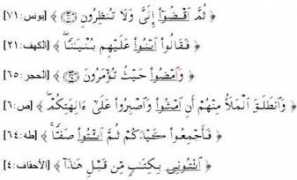 ﴿ ثُمَّ اقْضُوٓا۟ إِلَىَّ وَلَا تُنظِرُونِ ﴾ [يونس: ٧١]
﴿ فَقَالُوا۟ ابْنُوا۟ عَلَيْهِم بُنْيَـٰنًا ﴾ [الكهف: ٢١]
﴿ وَامْضُوا۟ حَيْثُ تُؤْمَرُونَ ﴾ [الحجر: ٦٥]
﴿ وَانطَلَقَ الْمَلَأُ مِنْهُمْ أَنِ امْشُوا۟ وَاصْبِرُوا۟ عَلَىٰٓ ءَالِهَتِكُمْ ﴾ [ص: ٦]
﴿ فَأَجْمِعُوا۟ كَيْدَكُمْ ثُمَّ ائْتُوا۟ صَفًّا ﴾ [طه: ٦٤]
﴿ ائْتُونِى بِكِتَـٰبٍ مِّن قَبْلِ هَـٰذَآ ﴾ [الأحقاف: ٤]